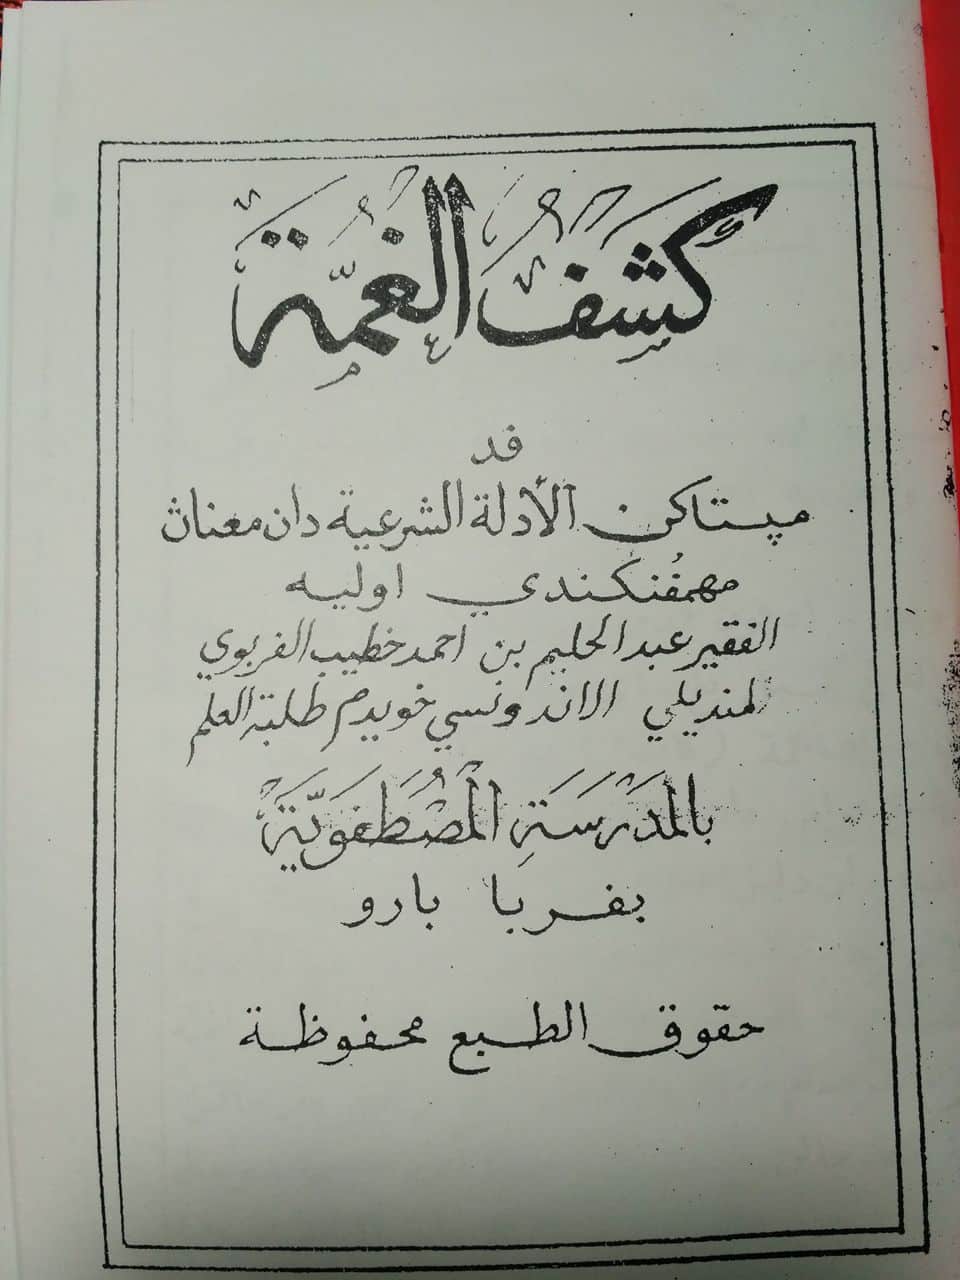 كَشْفُ الْغُمَّةِ
فد
مپتاكن الأدلة الشرعية دان معناڽ
مهمفنكندي اوليه
الفقير عبد الحليم بن احمد خطيب الفربوي
المنديلي الاندونسي خويدم طلبة العلم
بالْمَدْرَسَةِ الْمُصْطَفَوِيَّةِ
بفربا بارو
حقوق الطبع محفوظة